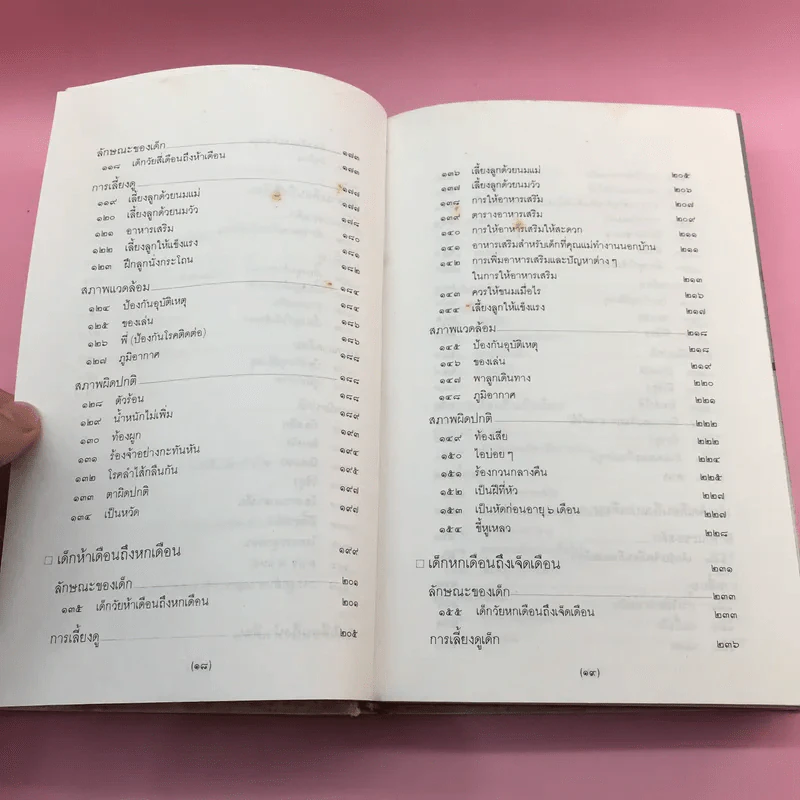 ลักษณะของเด็ก ๑๘๓
๑๑๘ เด็กวัยสี่เดือนถึงห้าเดือน ๑๘๓
การเลี้ยงดู ๑๗๘
๑๑๙ เลี้ยงลูกด้วยนมแม่ ๑๗๘
๑๒๐ เลี้ยงลูกด้วยนมวัว
๑๒๑ อาหารเสริม
๑๒๒ เลี้ยงลูกให้แข็งแรง ๑๘๐
๑๒๓ ฝึกลูกนั่งกระโถน ๑๘๒
สภาพแวดล้อม ๑๘๔
๑๒๔ ป้องกันอุบัติเหตุ ๑๘๔
๑๒๕ ของเล่น ๑๘๖
๑๒๖ พี่ (ป้องกันโรคติดต่อ) ๑๘๖
๑๒๗ ภูมิอากาศ ๑๘๗
สภาพผิดปกติ ๑๘๘
๑๒๘ ตัวร้อน ๑๘๘
๑๒๙ น้ำหนักไม่เพิ่ม ๑๘๙
๑๓๐ ท้องผูก ๑๙๓
๑๓๑ ร้องจ้าอย่างกะทันหัน ๑๙๔
๑๓๒ โรคลำไส้กลืนกัน ๑๙๕
๑๓๓ ตาผิดปกติ ๑๙๘
๑๓๔ เป็นหวัด ๑๙๘
□ เด็กห้าเดือนถึงหกเดือน ๑๙๙
ลักษณะของเด็ก ๒๐๑
๑๓๕ เด็กวัยห้าเดือนถึงหกเดือน ๒๐๑
การเลี้ยงดู ๒๐๕
(๑๘)
๑๓๖ เลี้ยงลูกด้วยนมแม่ ๒๐๕
๑๓๗ เลี้ยงลูกด้วยนมวัว ๒๐๖
๑๓๘ การให้อาหารเสริม ๒๐๗
๑๓๙ ตารางอาหารเสริม ๒๐๙
๑๔๐ การให้อาหารเสริมให้สะดวก ๒๑๑
๑๔๑ อาหารเสริมสำหรับเด็กที่คุณแม่ทำงานนอกบ้าน ๒๑๑
๑๔๒ การเพิ่มอาหารเสริมและปัญหาต่าง ๆ
ในการให้อาหารเสริม ๒๑๓
๑๔๓ ควรให้ขนมเมื่อไร ๒๑๖
๑๔๔ เลี้ยงลูกให้แข็งแรง ๒๑๗
สภาพแวดล้อม ๒๑๘
๑๔๕ ป้องกันอุบัติเหตุ ๒๑๘
๑๔๖ ของเล่น ๒๑๙
๑๔๗ พาลูกเดินทาง ๒๒๐
๑๔๘ ภูมิอากาศ ๒๒๑
สภาพผิดปกติ ๒๒๒
๑๔๙ ท้องเสีย ๒๒๒
๑๕๐ ไอบ่อย ๆ ๒๒๔
๑๕๑ ร้องกวนกลางคืน ๒๒๕
๑๕๒ เป็นฝีที่หัว ๒๒๗
๑๕๓ เป็นหัดก่อนอายุ ๖ เดือน ๒๒๗
๑๕๔ ขี้หูเหลว ๒๒๘
□ เด็กหกเดือนถึงเจ็ดเดือน ๒๓๑
ลักษณะของเด็ก ๒๓๓
๑๕๕ เด็กวัยหกเดือนถึงเจ็ดเดือน ๒๓๓
การเลี้ยงดูเด็ก ๒๓๖
(๑๙)